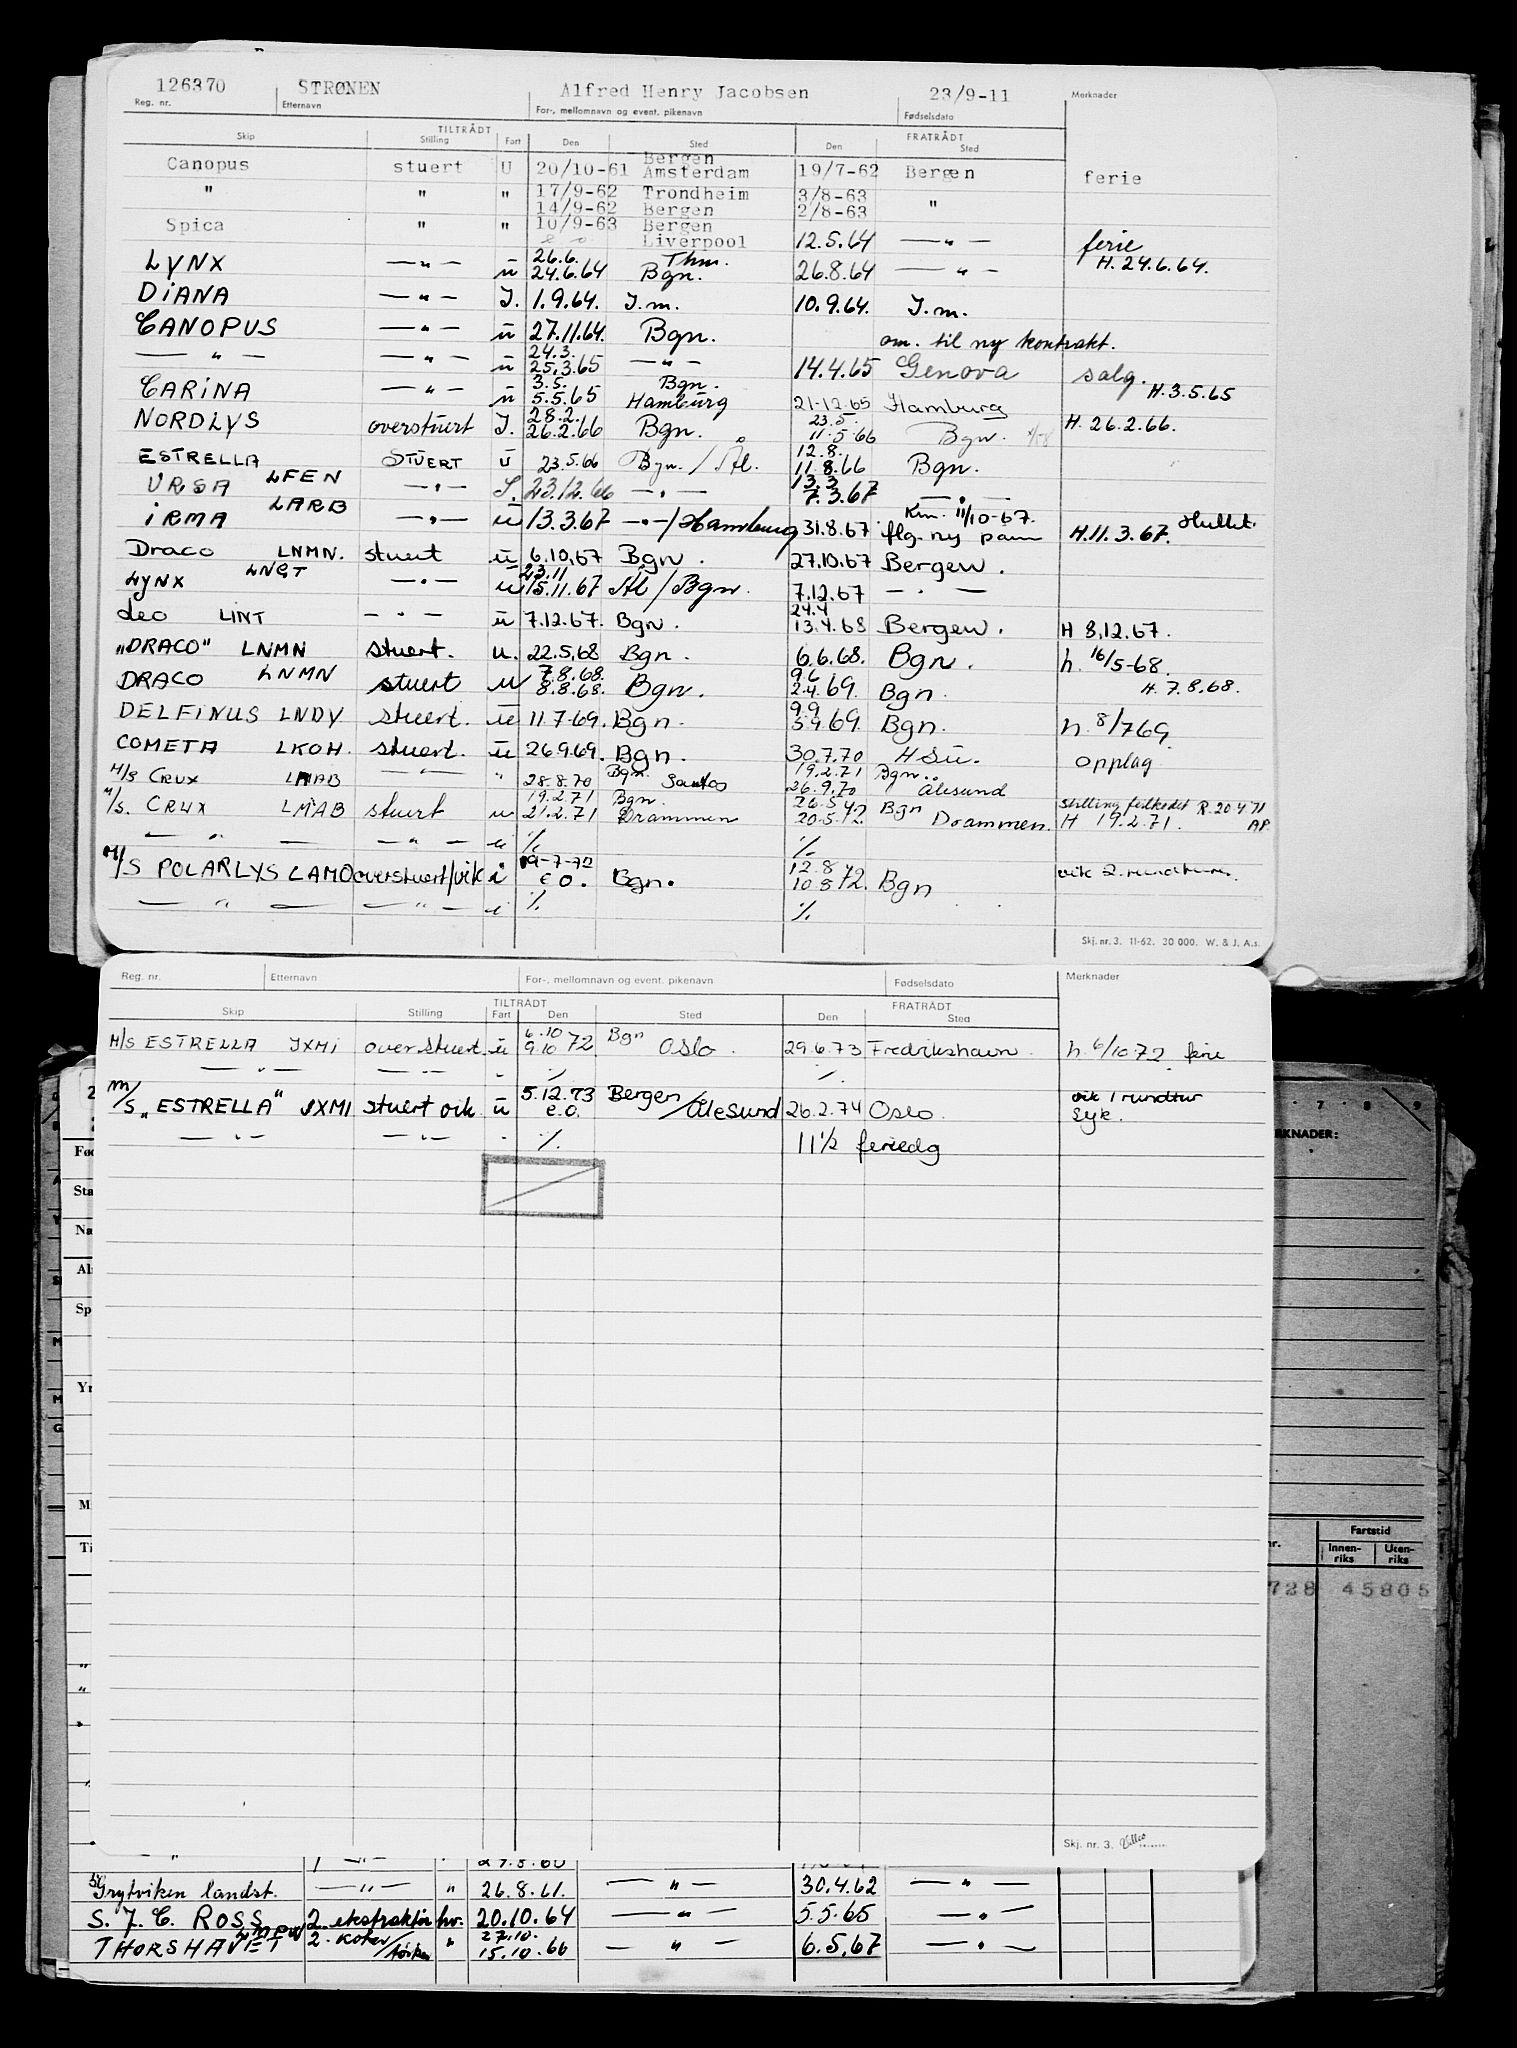 126370 STRØNEN Alfred Henry Jacobsen 23/9-11 Merknader
Reg. nr. Etternavn For-, mellomnavn og event. pikenavn Fødselsdato
TILTRÅDT FRATRÅDT
Skip Stilling Fart Den Sted Den Sted
Bergen
Canopus stuert U 20/10-61 Amsterdam 19/7-62 Bergen ferie
" " " 17/9-62 Trondheim 3/8-63 "
14/9-62 Bergen 2/8-63
Spica " " 10/9-63 Bergen
Liverpool 12.5.64 —"— ferie
LYNX —"— u 26.6. Thm.
24.6.64 Bgn. 26.8.64 —"— H. 24.6.64.
DIANA —"— I. 1.9.64. I.m. 10.9.64 I.m.
CANOPUS —"— u 27.11.64. Bgn. om. til ny kontrakt.
—"— —"— u 24.3.
25.3.65 —"— 14.4.65 Genova salg.
CARINA —"— u 3.5. Bgn. H. 3.5.65
5.5.65 Hamburg 21-12.65 Hamburg
NORDLYS overstuert I. 28.2. 23.5.
26.2.66 Bgn. 11.5.66 Bgn. H. 26.2.66.
ESTRELLA STUERT u 23.5.66 Bgn. / Ål. 12.8.
11.8.66 Bgn.
URSA LFEN —"— I. 23.12.66 —"— 13.3
7.3.67 —"—
IRMA LARB —"— u 13.3.67 —"—/Hamburg 31.8.67 Km. 11/10-67.
flg. ny påm H. 11.3.67.
Draco LNMN. stuert u 6.10.67 Bgn. 27.10.67 Bergen.
Lynx LNGT —"— u 23.11
15.11.67 Ål / Bgn. 7.12.67 —"—
Leo LINT —"— u 7.12.67. Bgn. 24.4
13.4.68 Bergen. H 8.12.67.
„DRACO" LNMN stuert. u. 22.5.68 Bgn. 6.6.68. Bgn. h. 16/5-68.
DRACO LNMN stuert u 7.8.68.
8.8.68. Bgn. 9.6
2.4.69. Bgn. H. 7.8.68.
DELFINUS LNDV stuert. u 11.7.69. Bgn. 9.9
5.9.69. Bgn. h. 8/7 69.
COMETA LKOH. stuert. u 26.9.69. Bgn. 30.7.70 HSU. opplag
M/S CRUX LMAB —"— " 28.8.70 Bgn. Santos 19.2.71 Bgn.
26.9.70 Ålesund
M/S. CRUX LMAB stuert u 19.2.71 Bgn. 26.5.72 Bgn
21.2.71 Drammen 20.5.72. Drammen. H 19.2.71. R. 20.4.71 AP.
—"— —"— u %. %.
M/S POLARLYS LAMO overstuert/vik i 19-7-72
e.o. Bgn. 12.8
10.8.72. Bgn vik 2. rundturer.
—"— —"— i %. %.
Skj. nr. 3. 11-62. 30 000. W. & J. A.s.
Reg. nr. Etternavn For-, mellomnavn og event. pikenavn Fødselsdato Merknader
TILTRÅDT FRATRÅDT
Skip Stilling Fart Den Sted Den Sted
M/S ESTRELLA JXMI overstuert u 6.10
9.10 72 Bgn Oslo. 29.6.73 Fredrikshavn. h. 6/10.72 ferie
—"— —"— " %. %.
M/S „ESTRELLA" JXMI stuert vik u 5.12.73
e.o. Bergen
/Ålesund 26.2.74 Oslo. vik 1 rundtur
Syk.
—"— —"— " %. 11½ feriedg
Skj. nr. 3.
7 8 9
KNADER:
Fartstid
Innen-riks Uten-riks
728 45805
27.5.60
Grytviken landst. —"— " 26.8.61. —"— 30.4.62 —"—
S. J. C. ROSS 2. ekstraktør hv. 20.10.64 —"— 5.5.65 —"—
THORSHAVET 2. koker/ " 27.10.
15.10.66 —"— 6.5.67 —"—